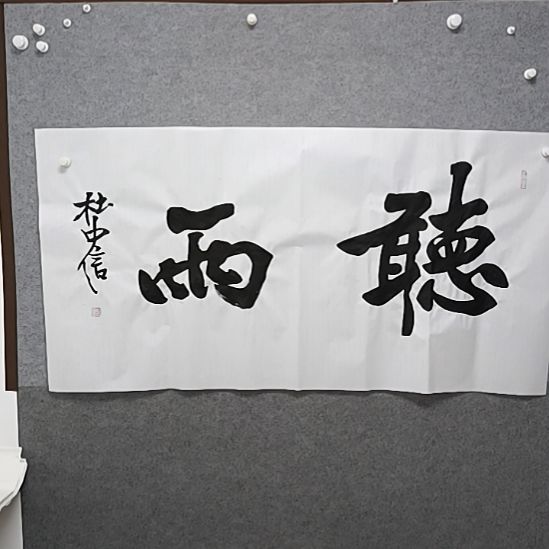 聽雨
杜中信